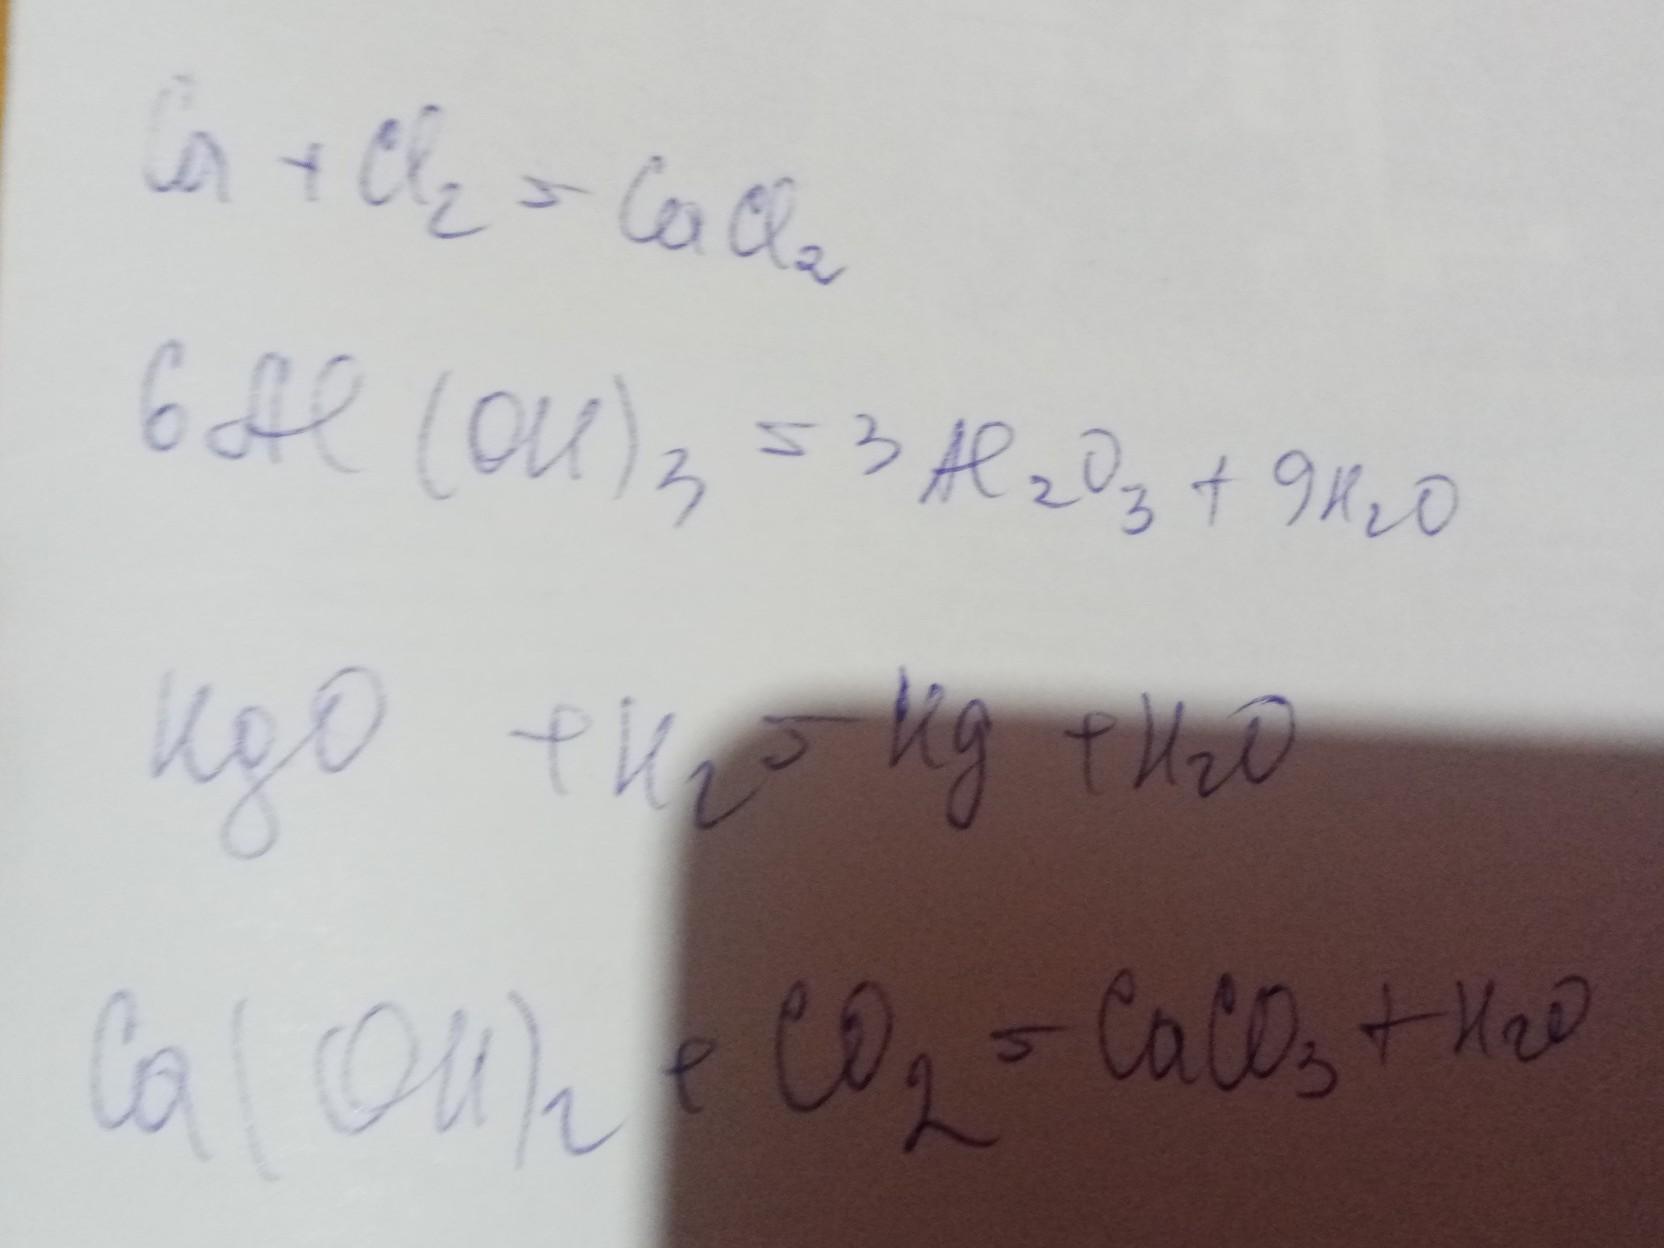 Ca + Cl₂ = CaCl₂
6Al(OH)₃ = 3Al₂O₃ + 9H₂O
HgO + H₂ = Hg + H₂O
Ca(OH)₂ + CO₂ = CaCO₃ + H₂O